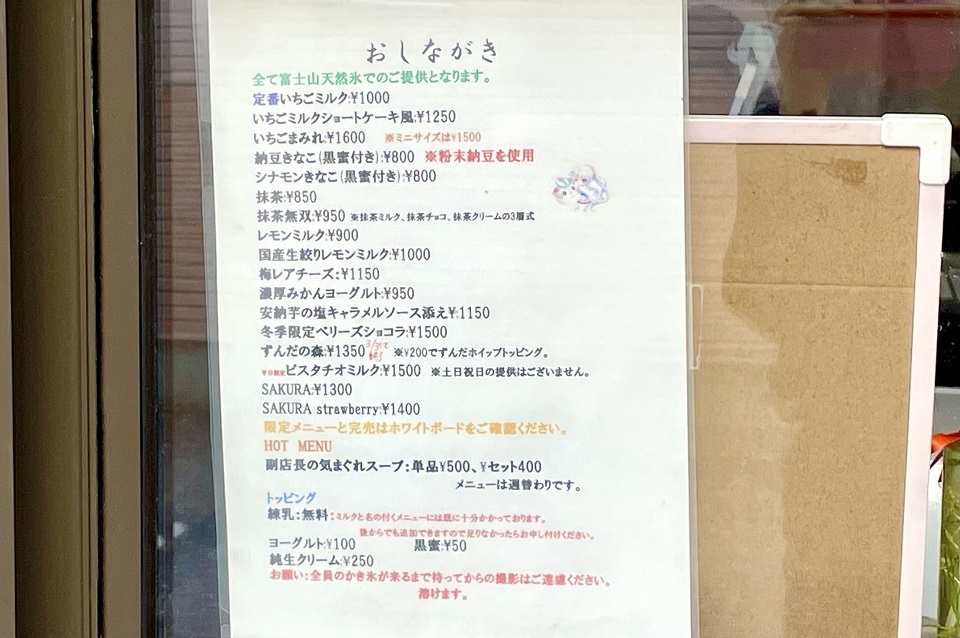 おしながき
全て富士山天然氷でのご提供となります。
定番いちごミルク:¥1000
いちごミルクショートケーキ風:¥1250
いちごまみれ:¥1600 ※ミニサイズは¥1500
納豆きなこ(黒蜜付き):¥800 ※粉末納豆を使用
シナモンきなこ(黒蜜付き):¥800
抹茶:¥850
抹茶無双:¥950 ※抹茶ミルク、抹茶チョコ、抹茶クリームの3層式
レモンミルク:¥900
国産生絞りレモンミルク:¥1000
梅レアチーズ:¥1150
濃厚みかんヨーグルト:¥950
安納芋の塩キャラメルソース添え¥:1150
冬季限定ベリーズショコラ:¥1500
ずんだの森:¥1350 3/31で ※¥200でずんだホイップトッピング。
平日限定ピスタチオミルク:¥1500 ※土日祝日の提供はございません。
SAKURA:¥1300
SAKURA strawberry:¥1400
限定メニューと完売はホワイトボードをご確認ください。
HOT MENU
副店長の気まぐれスープ:単品¥500、¥セット400
メニューは週替わりです。
トッピング
練乳:無料:ミルクと名の付くメニューには既に十分かかっております。
後からでも追加できますので足りなかったらお申し付けください。
ヨーグルト:¥100 黒蜜:¥50
純生クリーム:¥250
お願い:全員のかき氷が来るまで待ってからの撮影はご遠慮ください。
溶けます。